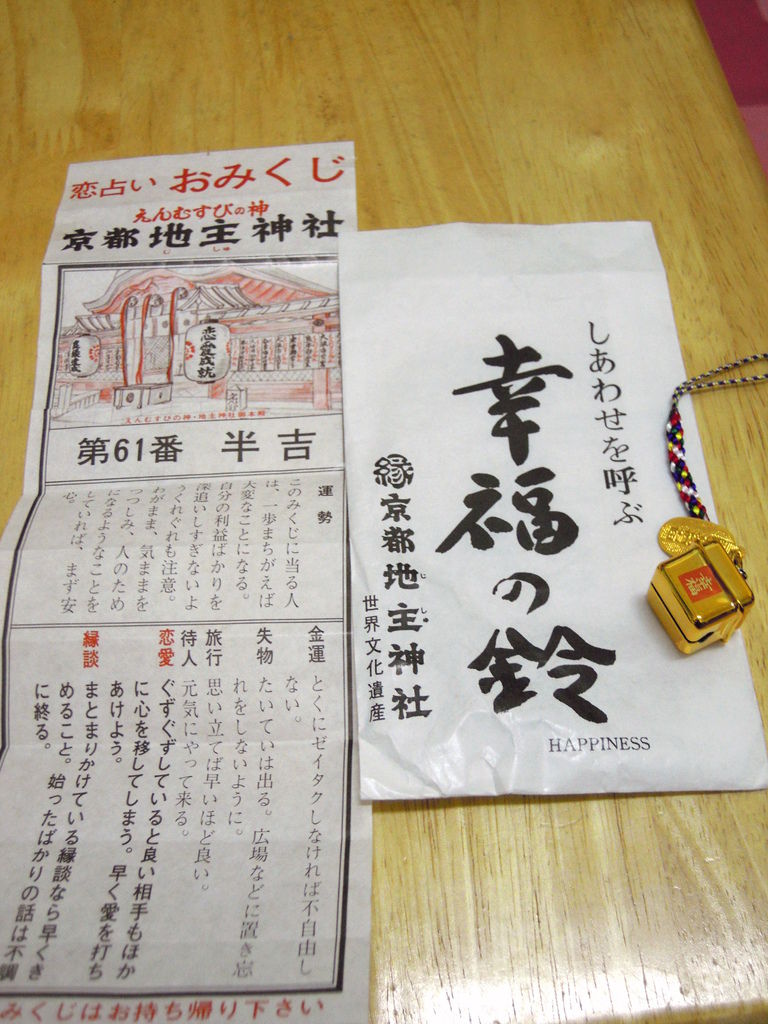 恋占い おみくじ
えんむすびの神
京都 地主神社
じしゅ
恋愛成就
えんむすびの神・地主神社御本殿
第61番 半吉
運勢
このみくじに当る人
は、一歩まちがえば
大変なことになる。
自分の利益ばかりを
深追いしすぎないよ
うくれぐれも注意。
わがまま、気ままを
つつしみ、人のため
になるようなことを
していれば、まず安
心。
金運 とくにゼイタクしなければ不自由し
ない。
失物 たいていは出る。広場などに置き忘
れをしないように。
旅行 思い立てば早いほど良い。
待人 元気にやって来る。
恋愛 ぐずぐずしていると良い相手もほか
に心を移してしまう。早く愛を打ち
あけよう。
縁談 まとまりかけている縁談なら早くき
めること。始ったばかりの話は不調
に終る。
みくじはお持ち帰り下さい
しあわせを呼ぶ
幸福の鈴
縁 京都 地主神社
じしゅ
世界文化遺産
HAPPINESS
幸福